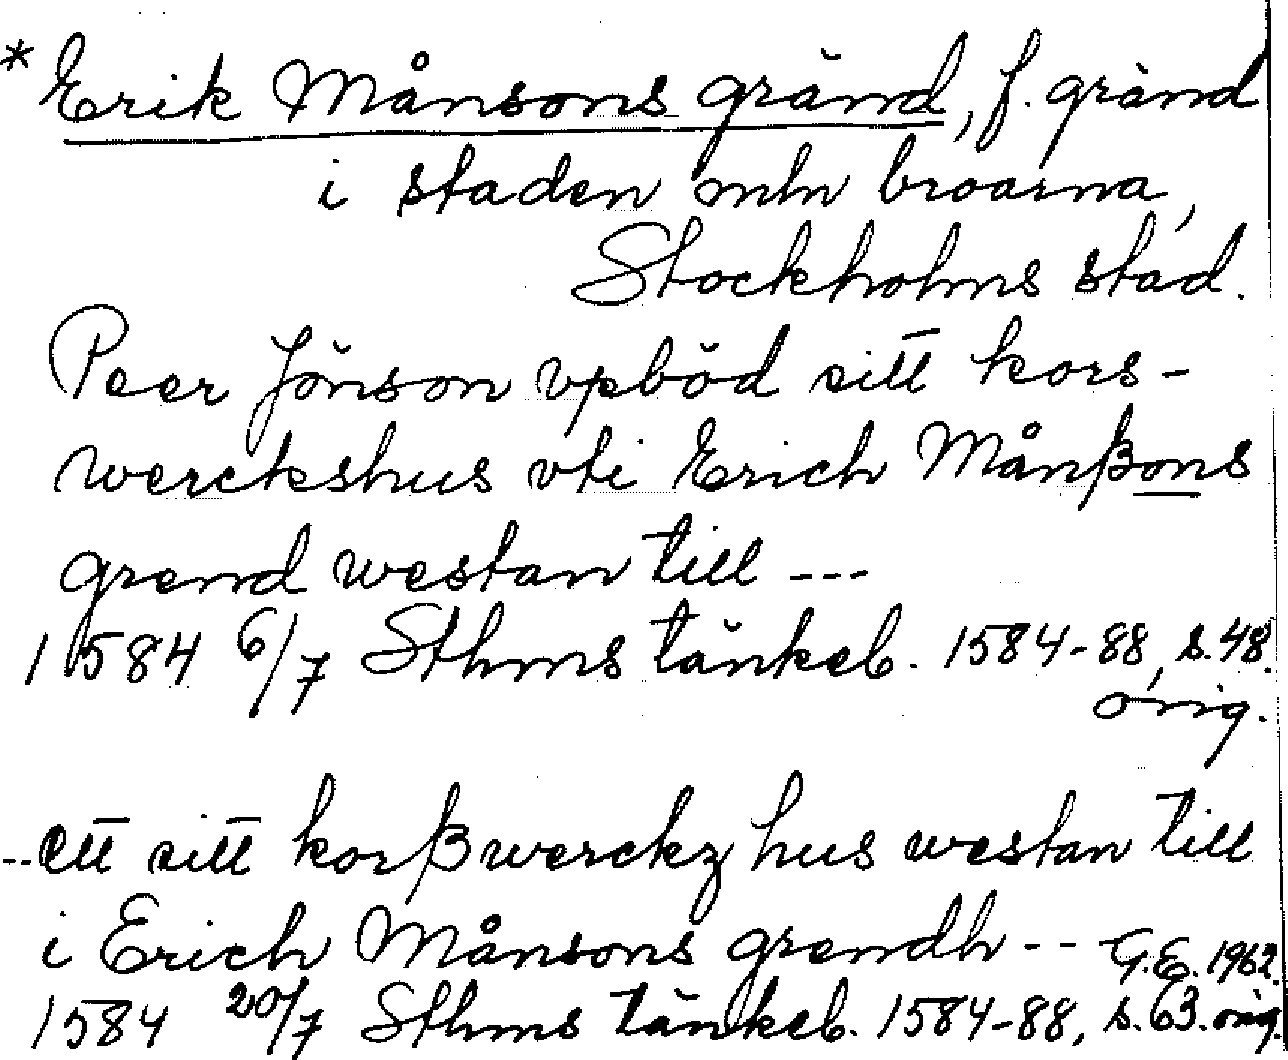 * Erik Månsons gränd, f. gränd
i staden mln broarna,
Stockholms stad.
Peer Jönson vpböd sitt kors-
werckshus vti Erich Månßons
grend westan till ---
1584 6/7 Sthms tänkeb. 1584-88, s. 48.
orig.
--ett sitt korßwerckz hus westan till
i Erich Månsons grendh -- G.E. 1962.
1584 20/7 Sthms tänkeb. 1584-88, s. 63. orig.